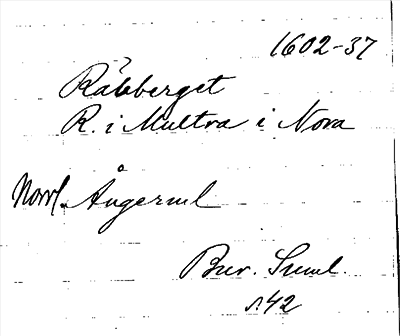 1602-37
Råbberget
R. i Multra i Nora
Norrl. Ångerml
Bur. Suml.
s. 42